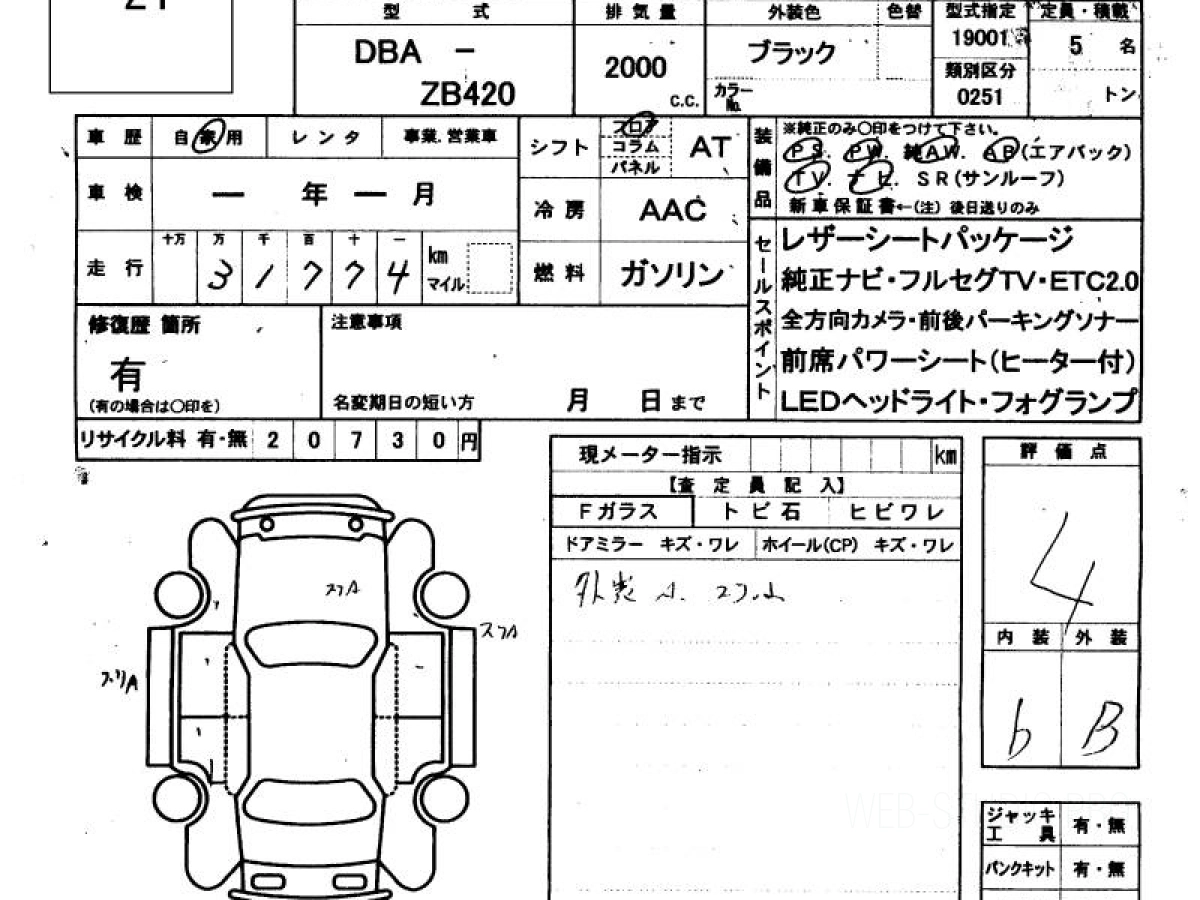 型 式
排 気 量
外装色
色替
型式指定
定員・積載
DBA －
ZB420
2000
C.C.
ブラック
カラーNo.
19001
類別区分
0251
5 名
トン
車 歴
自 家 用
レ ン タ
事業.営業車
車 検
ー 年 ー 月
走 行
十万 万 千 百 十 一
3 1 7 7 4
km
マイル
シフト
フロア
コラム
パネル
AT
冷 房
AAC
燃 料
ガソリン
装備品
※純正のみ〇印をつけて下さい。
PS. PW. 純AW. AB(エアバック)
TV. ナビ. SR(サンルーフ)
新車保証書←(注) 後日送りのみ
セールスポイント
レザーシートパッケージ
純正ナビ・フルセグTV・ETC2.0
全方向カメラ・前後パーキングソナー
前席パワーシート(ヒーター付)
LEDヘッドライト・フォグランプ
修復歴 箇所
有
(有の場合は〇印を)
注意事項
名変期日の短い方 月 日 まで
リサイクル料 有・無 2 0 7 3 0 円
現メーター指示 km
【査 定 員 記 入】
Fガラス
ト ビ 石
ヒ ビ ワ レ
ドアミラー キズ・ワレ
ホイール(CP) キズ・ワレ
外装 A.
評 価 点
4
内 装
外 装
b
B
スリA
スリA
スリA
ジャッキ
工 具
有・無
パンクキット
有・無